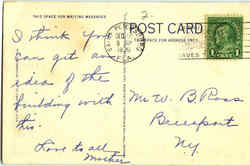 THIS SPACE FOR WRITING MESSAGES
POST CARD
THIS SPACE FOR ADDRESS ONLY
I think you
can get an
idea of the
building with
this.
Love to all
Mother
Mr W. B. Ross
NY.